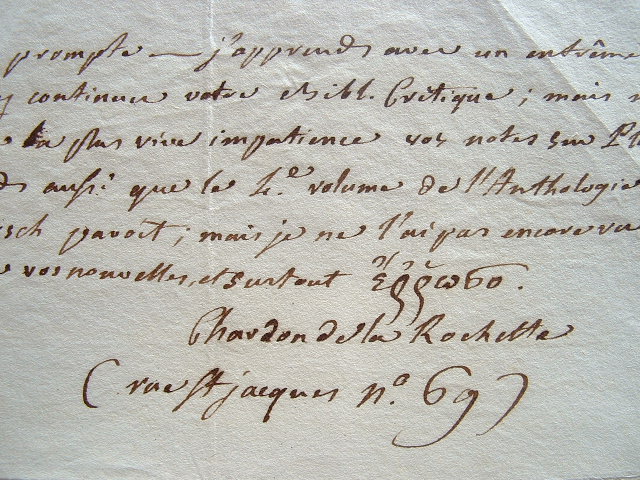 prompte — j'apprends avec un extrême
continuer votre Bibl. Critique; mais
la plus vive impatience vos notes sur
aussi que le 4.e volume de l'Anthologie
sch paroit; mais je ne l'ai pas encore vu
vos nouvelles, et surtout ἔῤῥωσο.
Chardon de la Rochette
(rue St jacques n.o 69)